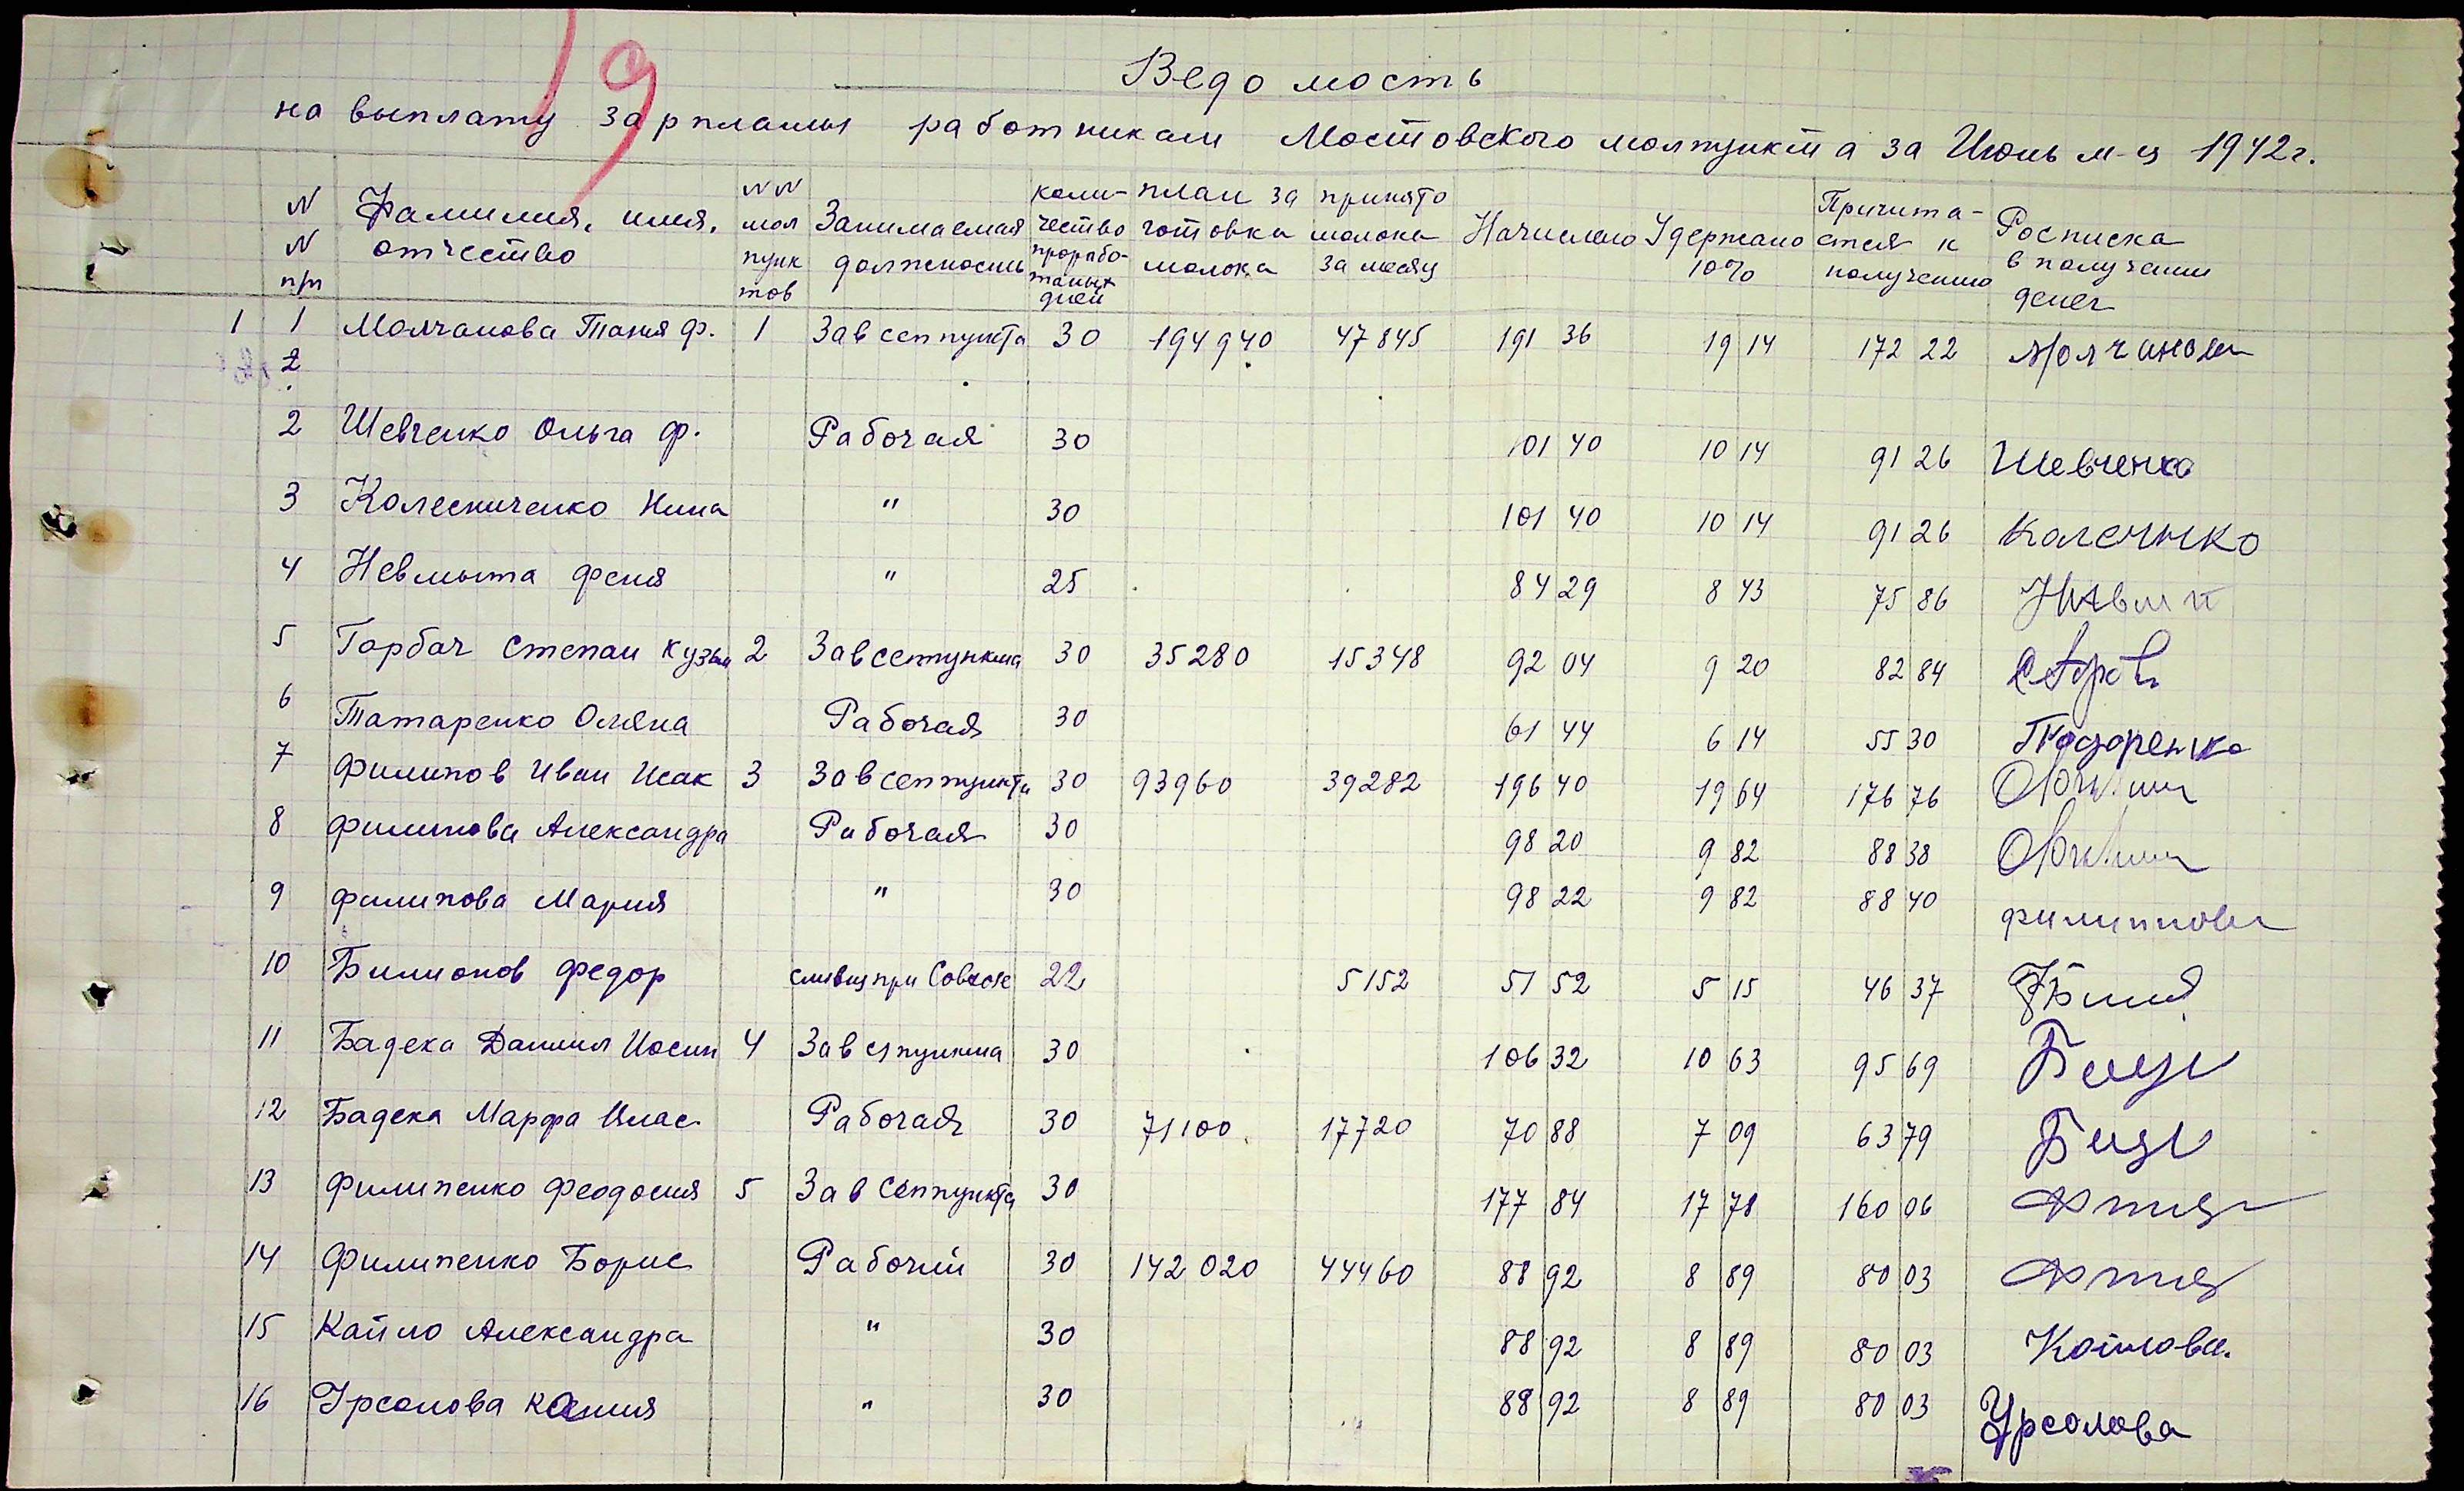 19
Ведомость
на выплату зарплаты работникам Мостовского молпункта за Июнь м-ц 1942г.
NN п/п Фамилия, имя, отчество NN мол пунктов Занимаемая должность количество проработаных дней план заготовка молока принято молока за месяц Начислено Удержано 10% Причитается к получению Росписка в получении денег
1 1 Молчанова Таня Ф. 1 Зав сеппункта 30 194940 47845 191 36 19 14 172 22 Молчанова
2
2 Шевченко Ольга Ф. Рабочая 30 101 40 10 14 91 26 Шевченко
3 Колесниченко Нина " 30 101 40 10 14 91 26
4 Невмыта Феня " 25 84 29 8 43 75 86
5 Горбач Степан Кузьм 2 Зав сеппункта 30 35280 15348 92 04 9 20 82 84
6 Татаренко Оляна Рабочая 30 61 44 6 14 55 30
7 Филипов Иван Исак 3 Зав сеппункта 30 93960 39282 196 40 19 64 176 76
8 Филипова Александра Рабочая 30 98 20 9 82 88 38
9 Филипова Мария " 30 98 22 9 82 88 40 Филиппова
10 Билионов Федор сливщ при Совхозе 22 5152 51 52 5 15 46 37
11 Бадека Данил Иосип 4 Зав с/пункта 30 106 32 10 63 95 69
12 Бадека Марфа Рабочая 30 71100 17720 70 88 7 09 63 79
13 Филипенко Феодосия 5 Зав Сеппункта 30 177 84 17 78 160 06
14 Филипенко Борис Рабочий 30 142020 44460 88 92 8 89 80 03
15 Кайло Александра " 30 88 92 8 89 80 03 Койлова.
16 Урсолова Ксения " 30 88 92 8 89 80 03 Урсолова